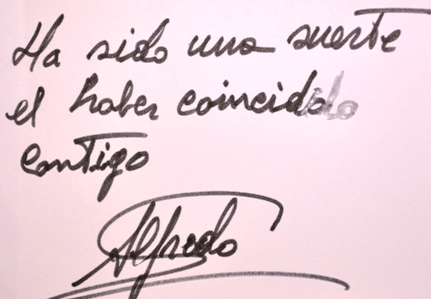 Ha sido una suerte
el haber coincidido
contigo
Alfredo